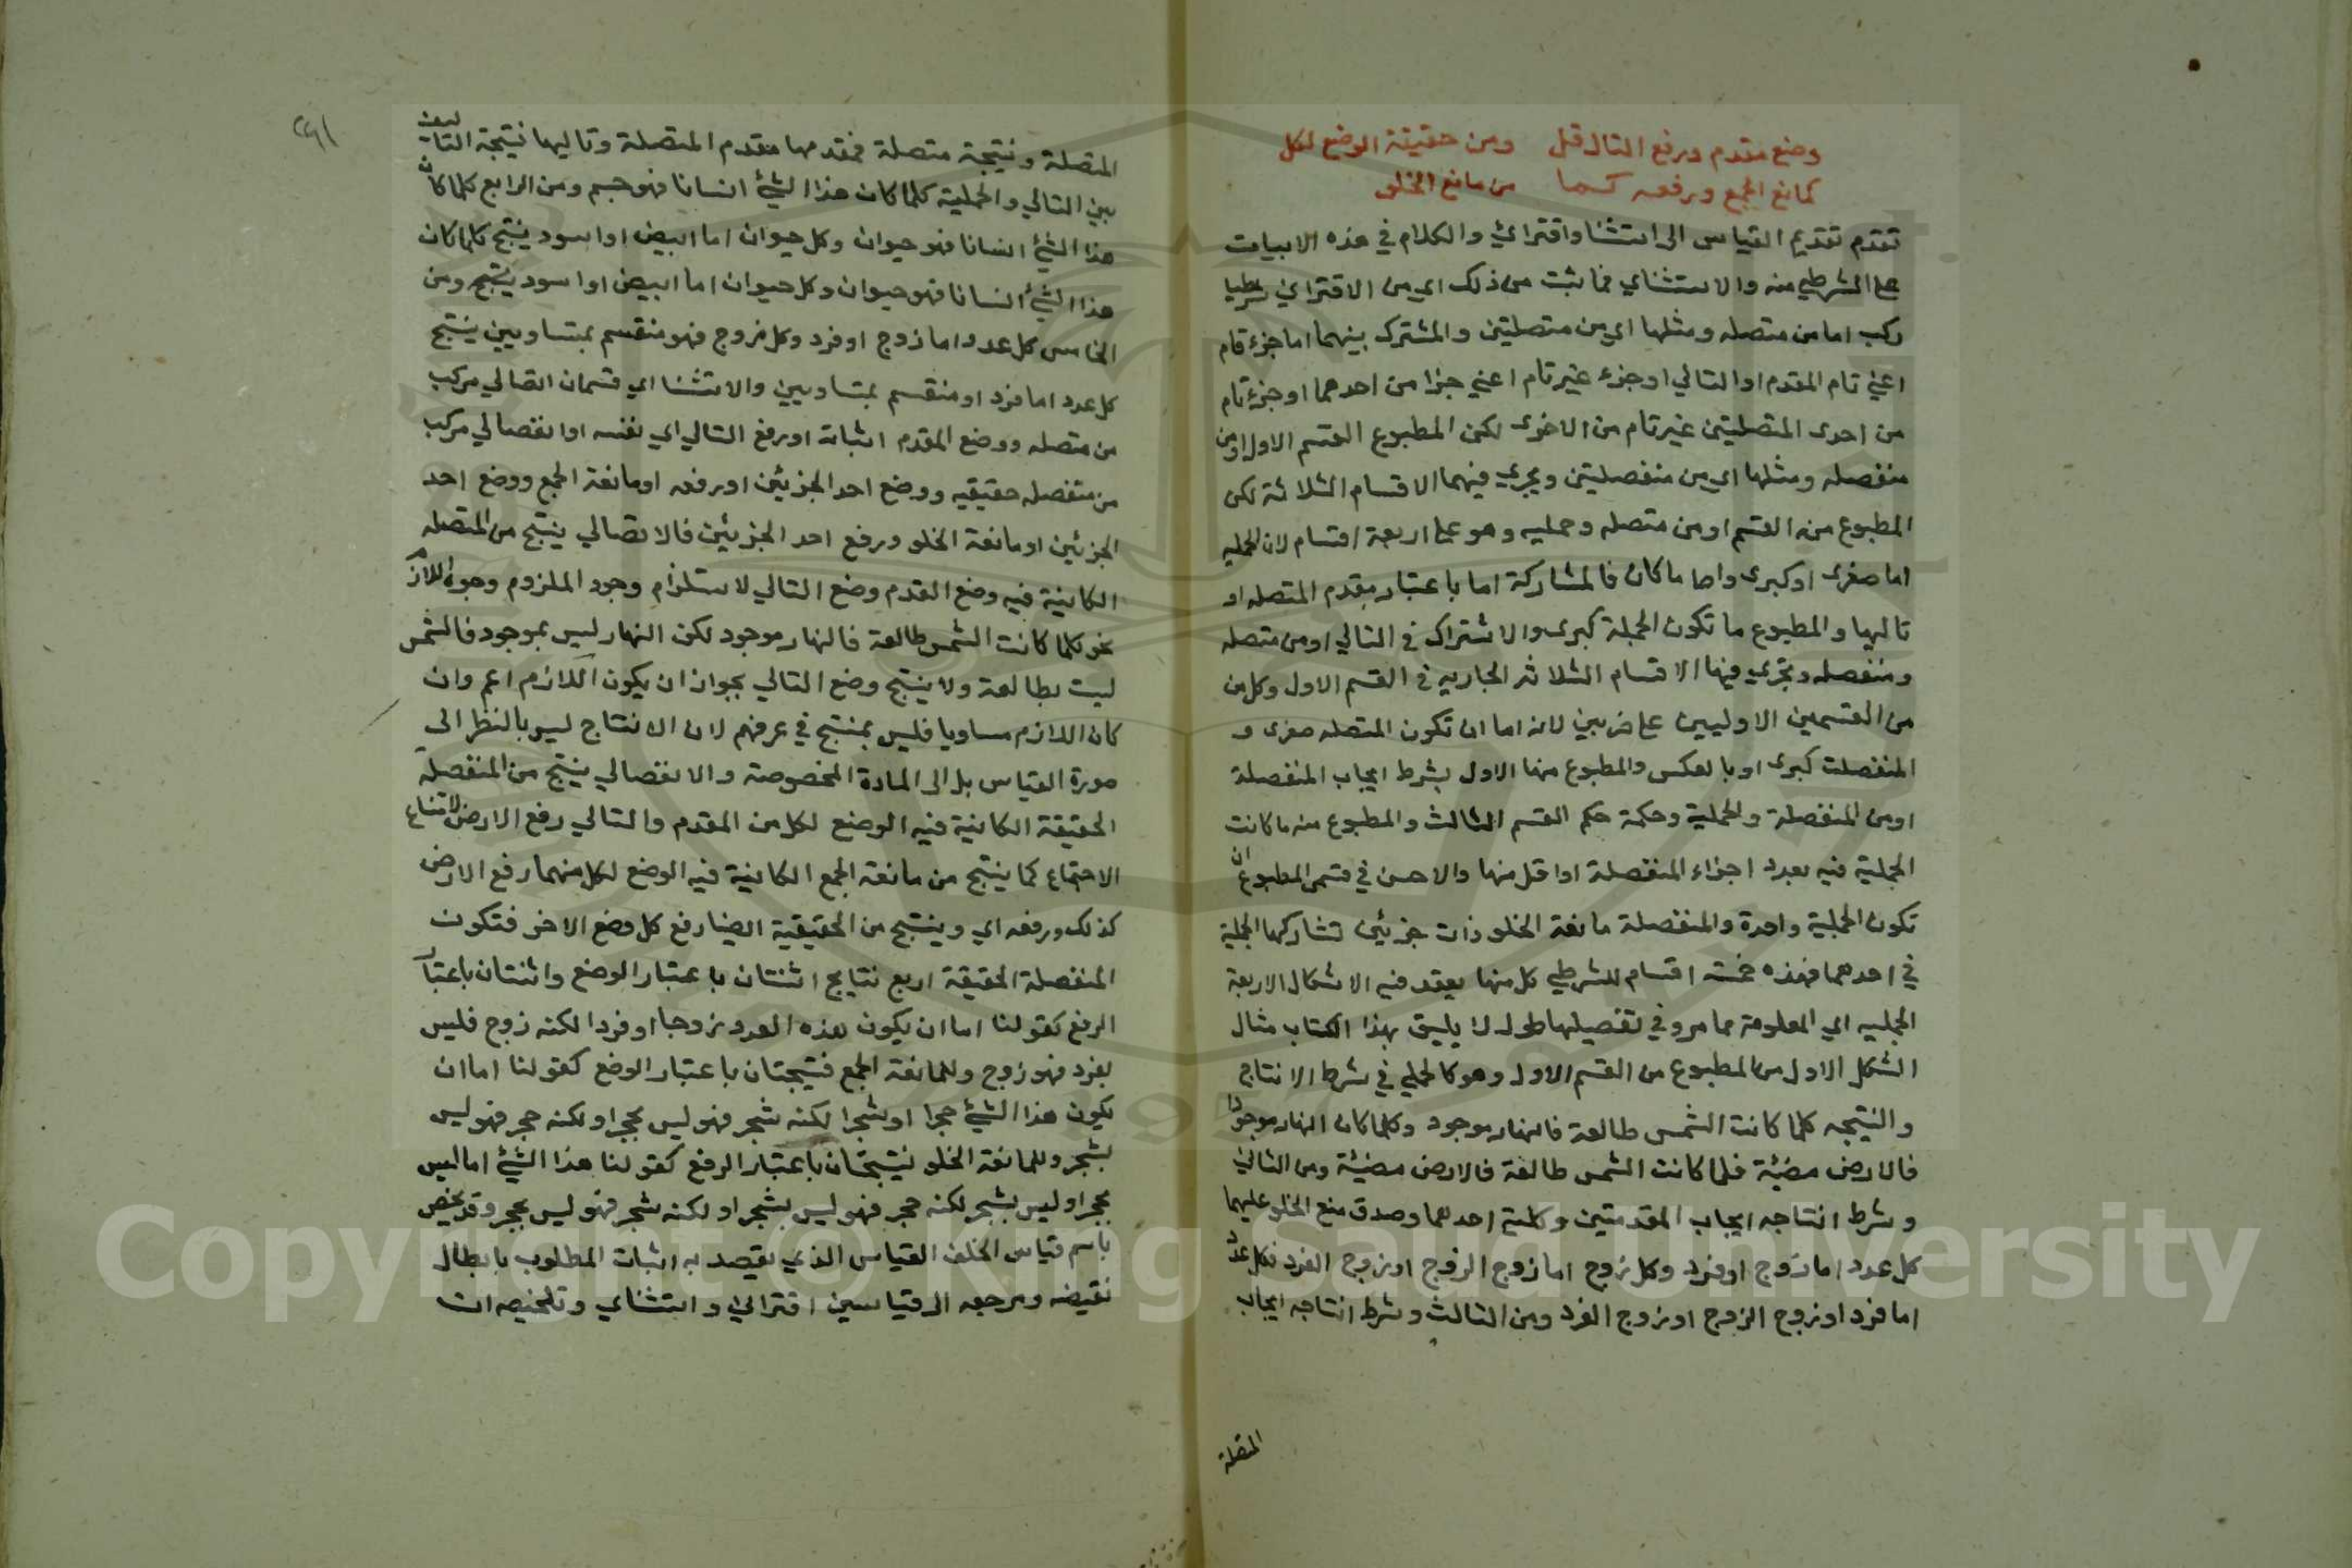 وضع مقدم ورفع التال قل ومن حقيقة الوضع لكل
كمانع الجمع ورفعه كما من مانع الخلو
تقدم تقديم القياس الى استثنا واقتراني والكلام في هذه الابيات
على الشرطي منه والاستثناي فما ثبت من ذلك اي من الاقتراني شرطيا
ركب اما من متصله ومثلها اي من متصلتين والمشترك بينهما اما جزء تام
اعني تام المقدم او التالي او جزء غير تام اعني جزا من احدهما او جزء تام
من احدى المتصلتين غير تام من الاخرى لكن المطبوع القسم الاول او من
منفصله ومثلها اي من منفصلتين ويجري فيهما الاقسام الثلاثة لكن
المطبوع منه القسم او من متصله وحمليه وهو على اربعة اقسام لان الحمليه
اما صغرى او كبرى واما ما كان فالمشاركة اما باعتبار مقدم المتصله او
تاليها والمطبوع ما تكون الحملة كبرى والاشتراك في التالي او من متصله
ومنفصله وتجري فيها الاقسام الثلاثه الجاريه في القسم الاول وكل من
من القسمين الاوليين على ضربين لانه اما ان تكون المتصله صغرى و
المنفصلت كبرى او بالعكس والمطبوع منها الاول بشرط ايجاب المنفصلة
او من المنفصلة والحملية وحكمة حكم القسم الثالث والمطبوع منه ما كانت
الحملية فيه بعدد اجزاء المنفصلة او اقل منها والاحسن في قسمى المطبوع ان
تكون الحملية واحدة والمنفصلة مانعة الخلو ذات جزئين تشاركهما الحملية
في احدهما فهذه خمسة اقسام للشرطي كل منها يعقد فيه الاشكال الاربعة
الحمليه اي المعلومة مما مر وفي تفصيلها طول لا يليق بهذا الكتاب مثال
الشكل الاول من المطبوع من القسم الاول وهو كالحملي في شرط الانتاج
والنتيجه كلما كانت الشمس طالعة فالنهار موجود وكلما كان النهار موجودا
فالارض مضيئة فلما كانت الشمس طالعة فالارض مضيئة ومن الثاني
وشرط انتاجه ايجاب المقدمتين وكلية احدهما وصدق منع الخلو عليهما
كل عدد اما زوج او فرد وكل زوج اما زوج الزوج او زوج الفرد فكل عدد
اما فرد او زوج الزوج او زوج الفرد ومن الثالث وشرط انتاجه ايجاب
المتصلة
٢٩١
المتصلة ونتيجة متصلة فمقدمها مقدم المتصلة وتاليها نتيجة التاليف
بين التالي والحملية كلما كان هذا الشئ انسانا فهو جسم ومن الرابع كلما كان
هذا الشئ انسانا فهو حيوان وكل حيوان اما ابيض او اسود ينتج كلما كان
هذا الشئ انسانا فهو حيوان وكل حيوان اما ابيض او اسود ينتج ومن
الخامس كل عدد اما زوج او فرد وكل زوج فهو منقسم بمتساويين ينتج
كل عدد اما فرد او منقسم بمتساويين والاستثنا اي قسمان اتصالي مركب
من متصله ووضع المقدم اثباته او رفع التالي اي نفسه او انفصالي مركب
من منفصله حقيقيه ووضع احد الجزئين او رفعه او مانعة الجمع ووضع احد
الجزئين او مانعة الخلو ورفع احد الجزئين فالاتصالي ينتج من المتصله
الكاينية فيه وضع المقدم وضع التالي لاستلزام وجود الملزوم وجود اللازم
نحو كلما كانت الشمس طالعة فالنهار موجود لكن النهار ليس بموجود فالشمس
ليت بطالعة ولا ينتج وضع التالي بجواز ان يكون اللازم اعم وان
كان اللازم مساويا فليس بمنتج في عرفهم لان الانتاج ليس بالنظر الى
صورة القياس بل الى المادة المخصوصة والانفصالي ينتج من المنفصلة
الحقيقة الكاينية فيه الوضع لكل من المقدم والتالي رفع الارض لامتناع
الاجتماع كما ينتج من مانعة الجمع الكاينية فيه الوضع لكل منهما رفع الارض
كذلك ورفعه اي وينتج من الحقيقية ايضا رفع كل وضع الاخر فتكون
المنفصلة الحقيقة اربع نتايج اثنتان باعتبار الوضع واثنتان باعتبار
الرفع كقولنا اما ان يكون هذه العدد زوجا او فردا لكنه زوج فليس
بفرد فهو زوج وللمانعة الجمع فنتيجتان باعتبار الوضع كقولنا اما ان
يكون هذا الشئ حجرا او شجرا لكنه شجر فهو ليس بحجر او لكنه حجر فهو ليس
بشجر وللمانعة الخلو نتيجتان باعتبار الرفع كقولنا هذا الشئ اما ليس
بحجر او ليس بشجر لكنه حجر فهو ليس بشجر او لكنه شجر فهو ليس بحجر وقد يخص
باسم قياس الخلف القياس الذي يقصد به اثبات المطلوب بابطال
نقيضه ومرجعه الى قياسين اقتراني واستثناي وتلخيصه ان
Copyright © King Saud University
1957